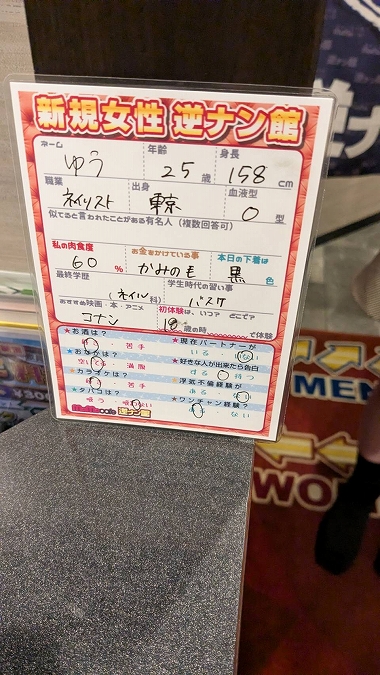 新規女性 逆ナン館
ネーム 年齢 身長
ゆう 25歳 158cm
職業 出身 血液型
ネイリスト 東京 O型
似てると言われたことがある有名人（複数回答可）
私の肉食度 お金をかけている事 本日の下着は
60% かみのも 黒色
最終学歴 学生時代の習い事
(ネイル科) バスケ
おすすめ映画・本・アニメ 初体験は、いつ？ どこで？
コナン 18歳の時 で体験
★お酒は？ ★現在パートナーが
苦手 いる・ない
★おなかは？ ★好きな人が出来たら告白
空いてる 満腹 する 待つ
★カラオケは？ ★浮気不倫経験が
苦手 ある ない
★タバコは？ ★ワンチャン経験？
吸う・吸わない ない
cafe 逆ナン館
MEN
WO